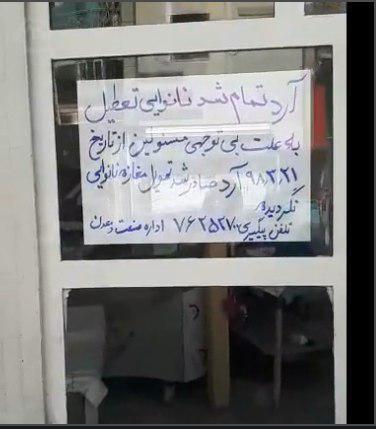 آرد تمام شد نانوایی تعطیل
به علت بی توجهی مسئولین از تاریخ
۹۸،۳،۲۱ آرد صادر شد تحویل مغازه نانوایی
نگردیده
تلفن پیگیری ۷۶۲۵۲۷۰ اداره صنعت و معدن